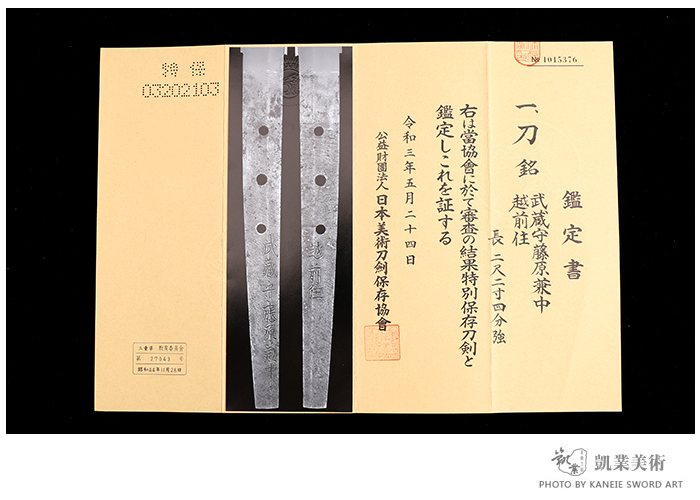 № 1015376
鑑定書
一、刀 銘 武蔵守藤原兼中
越前住
長 二尺二寸四分強
右は當協會に於て審査の結果特別保存刀剣と
鑑定しこれを証する
令和三年五月二十四日
公益財團法人 日本美術刀剣保存協會
越前住
武蔵守藤原兼中
特保
03202103
第 27049 号
昭和44年11月28日
凱業美術
PHOTO BY KANEIE SWORD ART